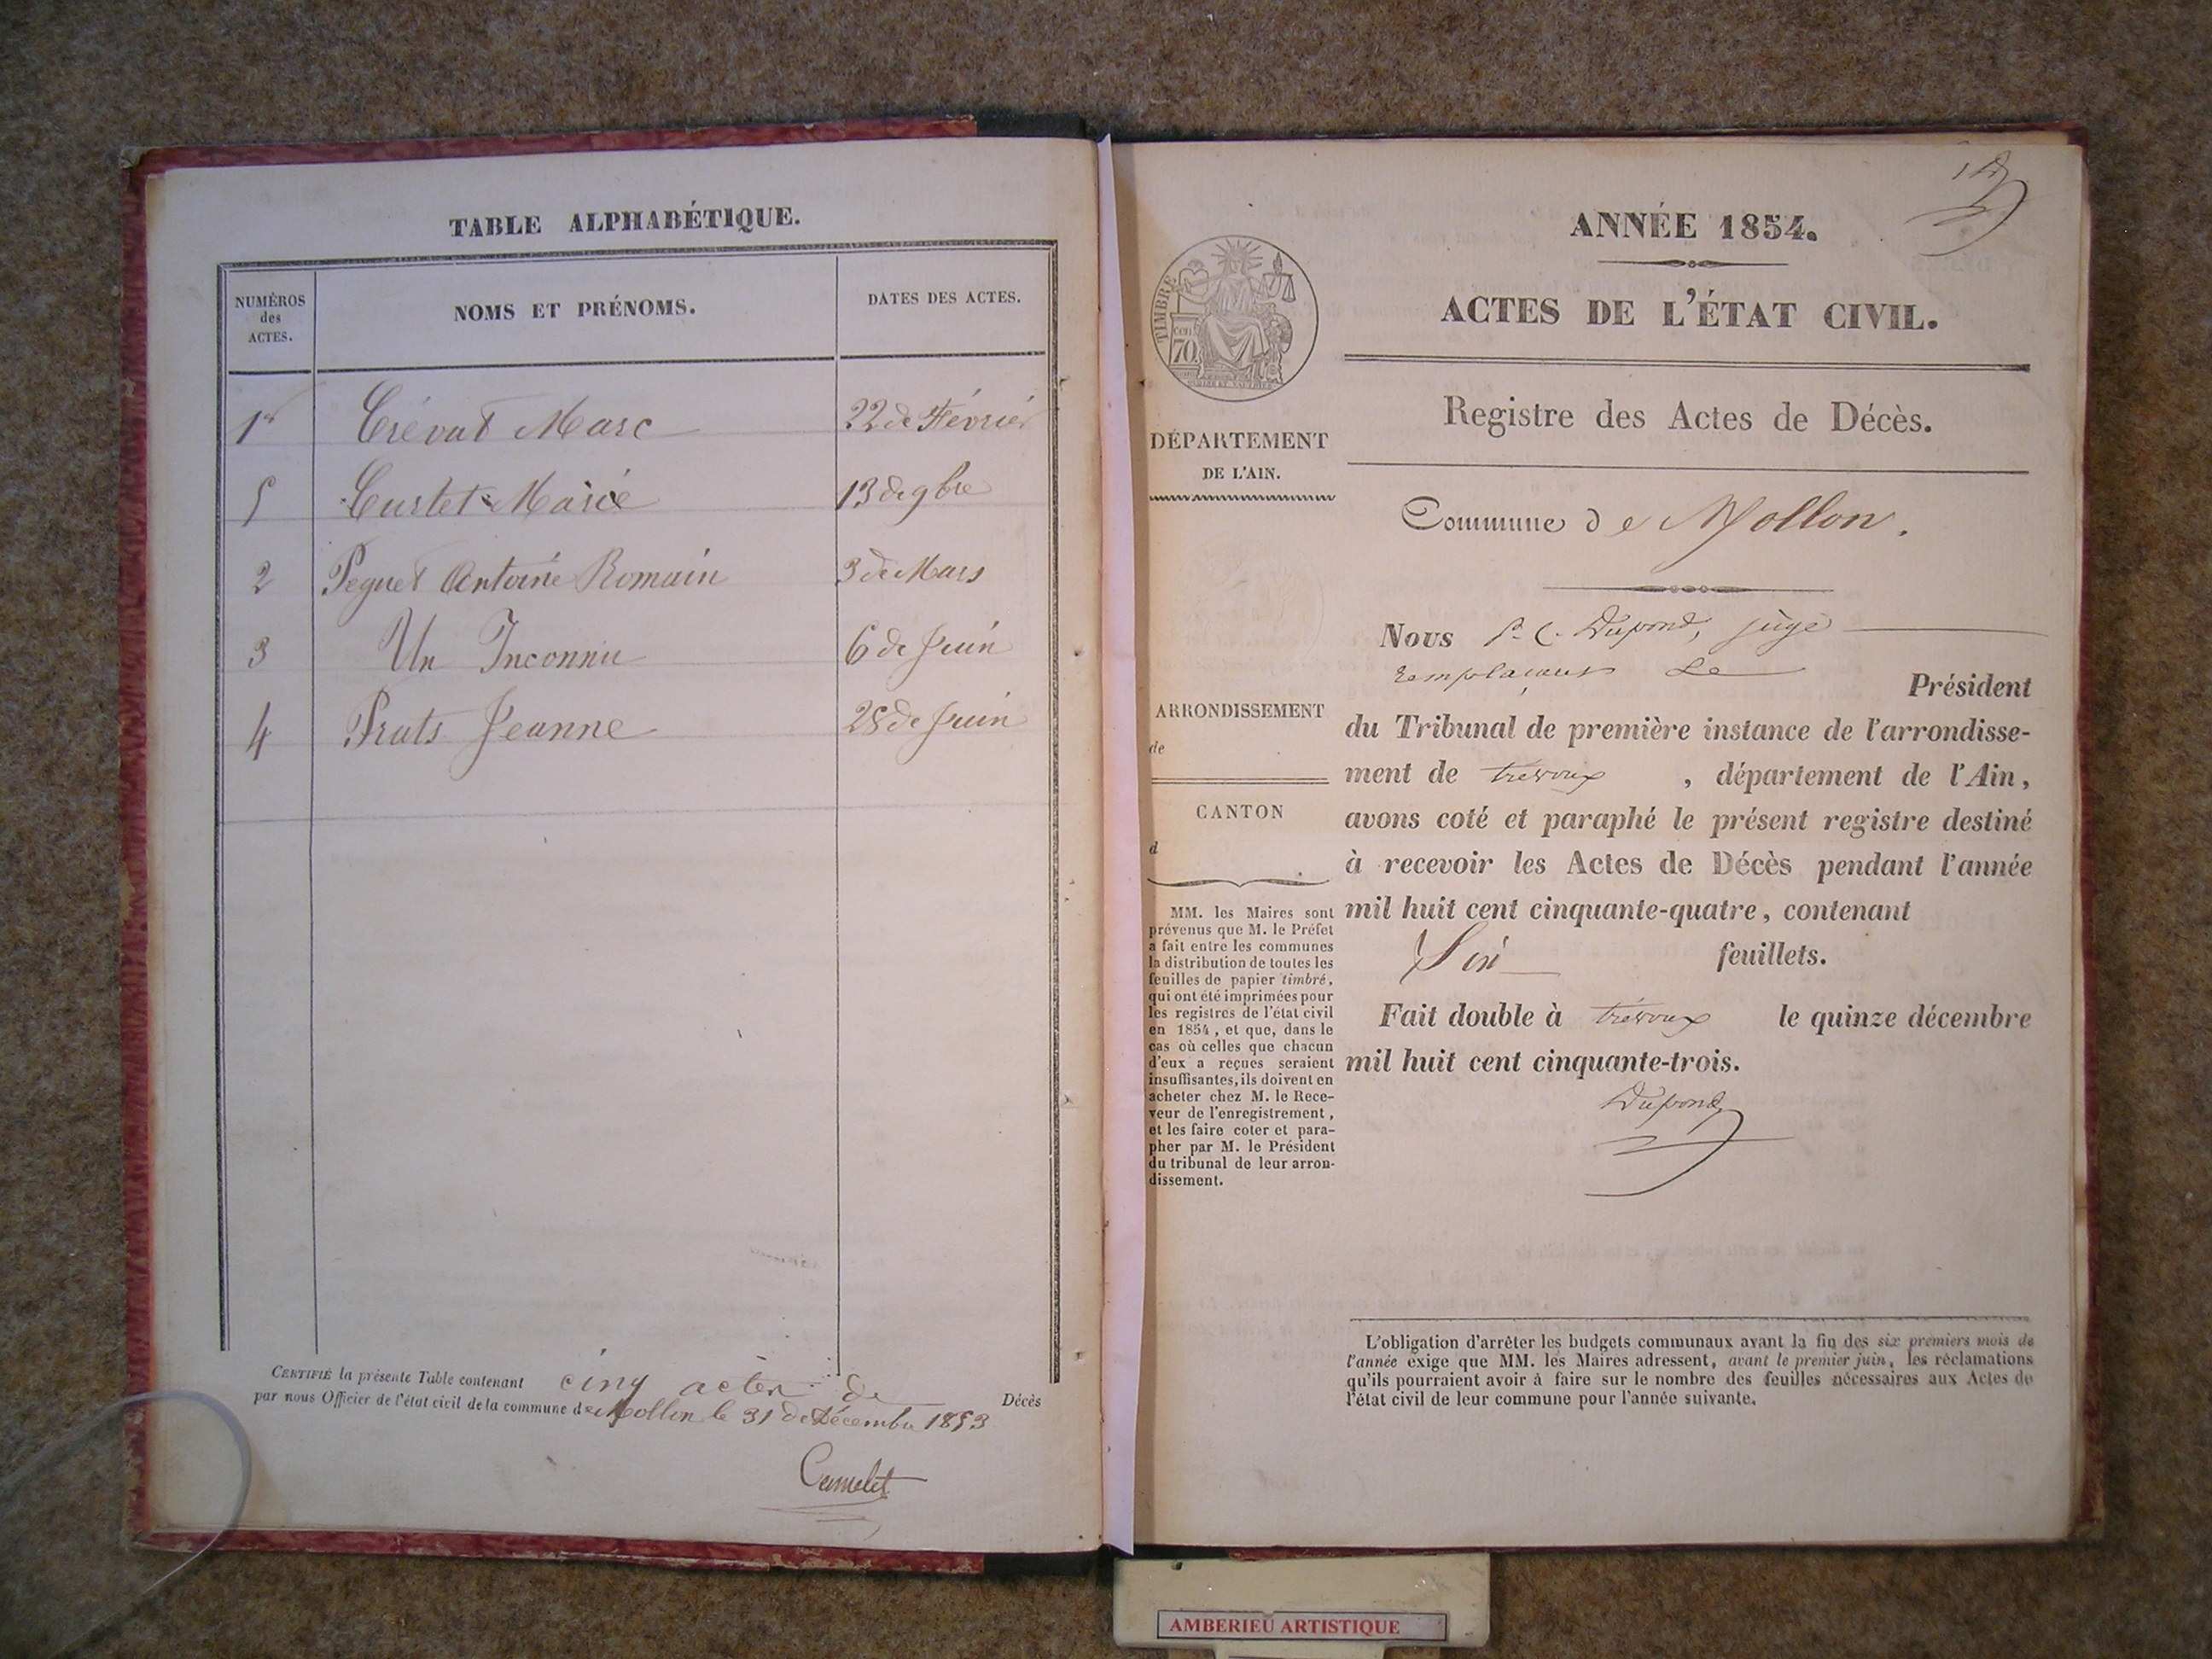 TABLE ALPHABÉTIQUE.
NUMÉROS des ACTES.
NOMS ET PRÉNOMS.
DATES DES ACTES.
1er Crévat Marc 22 de Février
5 Curtet Marie 13 de 9bre
2 Peguet Antoine Romain 3 de Mars
3 Un Inconnu 6 de Juin
4 Prats Jeanne 28 de Juin
CERTIFIÉ la présente Table contenant cinq actes de Décès
par nous Officier de l'état civil de la commune de Mollon le 31 de Décembre 1853
Camelet
TIMBRE
70
DÉPARTEMENT
DE L'AIN.
ARRONDISSEMENT
de
CANTON
d
MM. les Maires sont
prévenus que M. le Préfet
a fait entre les communes
la distribution de toutes les
feuilles de papier timbré,
qui ont été imprimées pour
les registres de l'état civil
en 1854, et que, dans le
cas où celles que chacun
d'eux a reçues seraient
insuffisantes, ils doivent en
acheter chez M. le Rece-
veur de l'enregistrement,
et les faire coter et para-
pher par M. le Président
du tribunal de leur arron-
dissement.
ANNÉE 1854.
ACTES DE L'ÉTAT CIVIL.
Registre des Actes de Décès.
Commune de Mollon.
Nous P. C. Dupond, juge
remplaçant le Président
du Tribunal de première instance de l'arrondisse-
ment de trévoux, département de l'Ain,
avons coté et paraphé le présent registre destiné
à recevoir les Actes de Décès pendant l'année
mil huit cent cinquante-quatre, contenant
Six feuillets.
Fait double à trévoux le quinze décembre
mil huit cent cinquante-trois.
Dupond
L'obligation d'arrêter les budgets communaux avant la fin des six premiers mois de
l'année exige que MM. les Maires adressent, avant le premier juin, les réclamations
qu'ils pourraient avoir à faire sur le nombre des feuilles nécessaires aux Actes de
l'état civil de leur commune pour l'année suivante.
AMBERIEU ARTISTIQUE